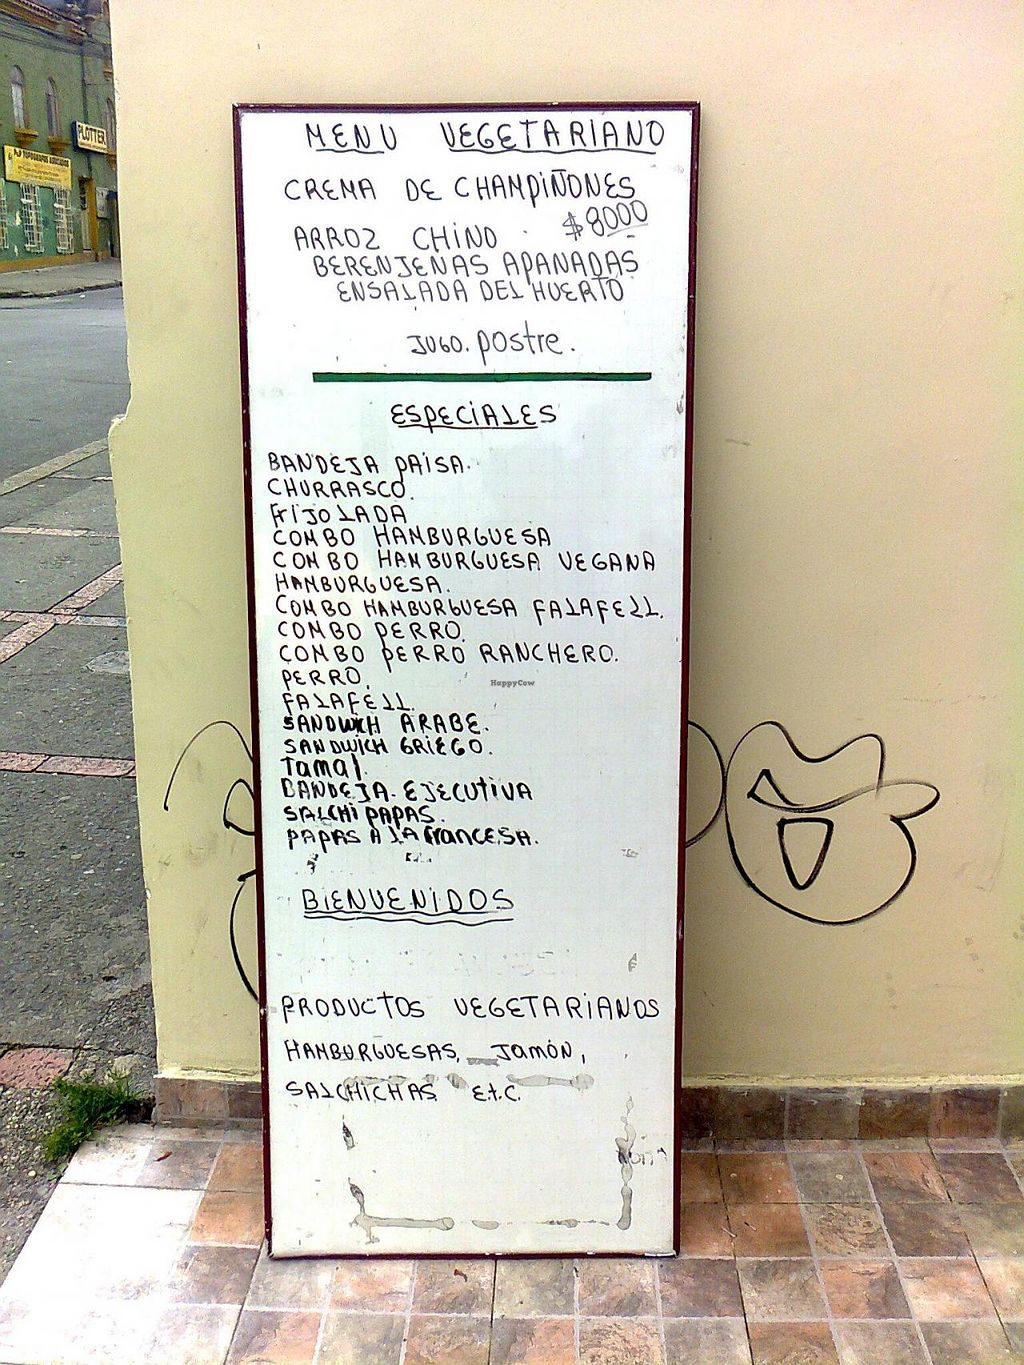 PLOTTER
MENU VEGETARIANO
CREMA DE CHAMPIÑONES
$8000
ARROZ CHINO.
BERENJENAS APANADAS
ENSALADA DEL HUERTO
JUGO. postre.
ESPECIALES
BANDEJA PAISA.
CHURRASCO.
FRIJOLADA
COMBO HAMBURGUESA
COMBO HAMBURGUESA VEGANA
HAMBURGUESA.
COMBO HAMBURGUESA FALAFELL.
COMBO PERRO.
COMBO PERRO RANCHERO.
PERRO.
FALAFELL.
SANDWICH ARABE.
SANDWICH GRIEGO.
Tamal.
BANDEJA EJECUTIVA
SALCHIPAPAS.
PAPAS A LA francesa.
BIENVENIDOS
PRODUCTOS VEGETARIANOS
HAMBURGUESAS, Jamón,
SALCHICHAS E.t.C.
HappyCow